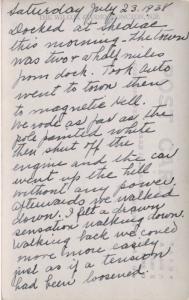 Saturday July 23. 1938
Docked at
this morning. The town
was two & a half miles
from dock. Took Auto
went to town then
to magnetic Hill.
We rode as far as the
pole painted white
then shut off the
engine and the car
went up the hill
without any power.
afterwards we walked
down. I felt a drawing
sensation walking down.
Walking back we could
move more easily
just as if a tension
had been loosened.
POST CARD